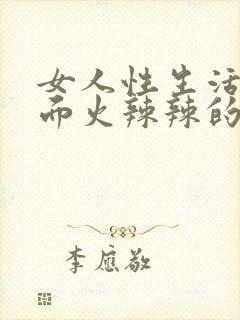 女人性生活
而火辣辣的
李应敬